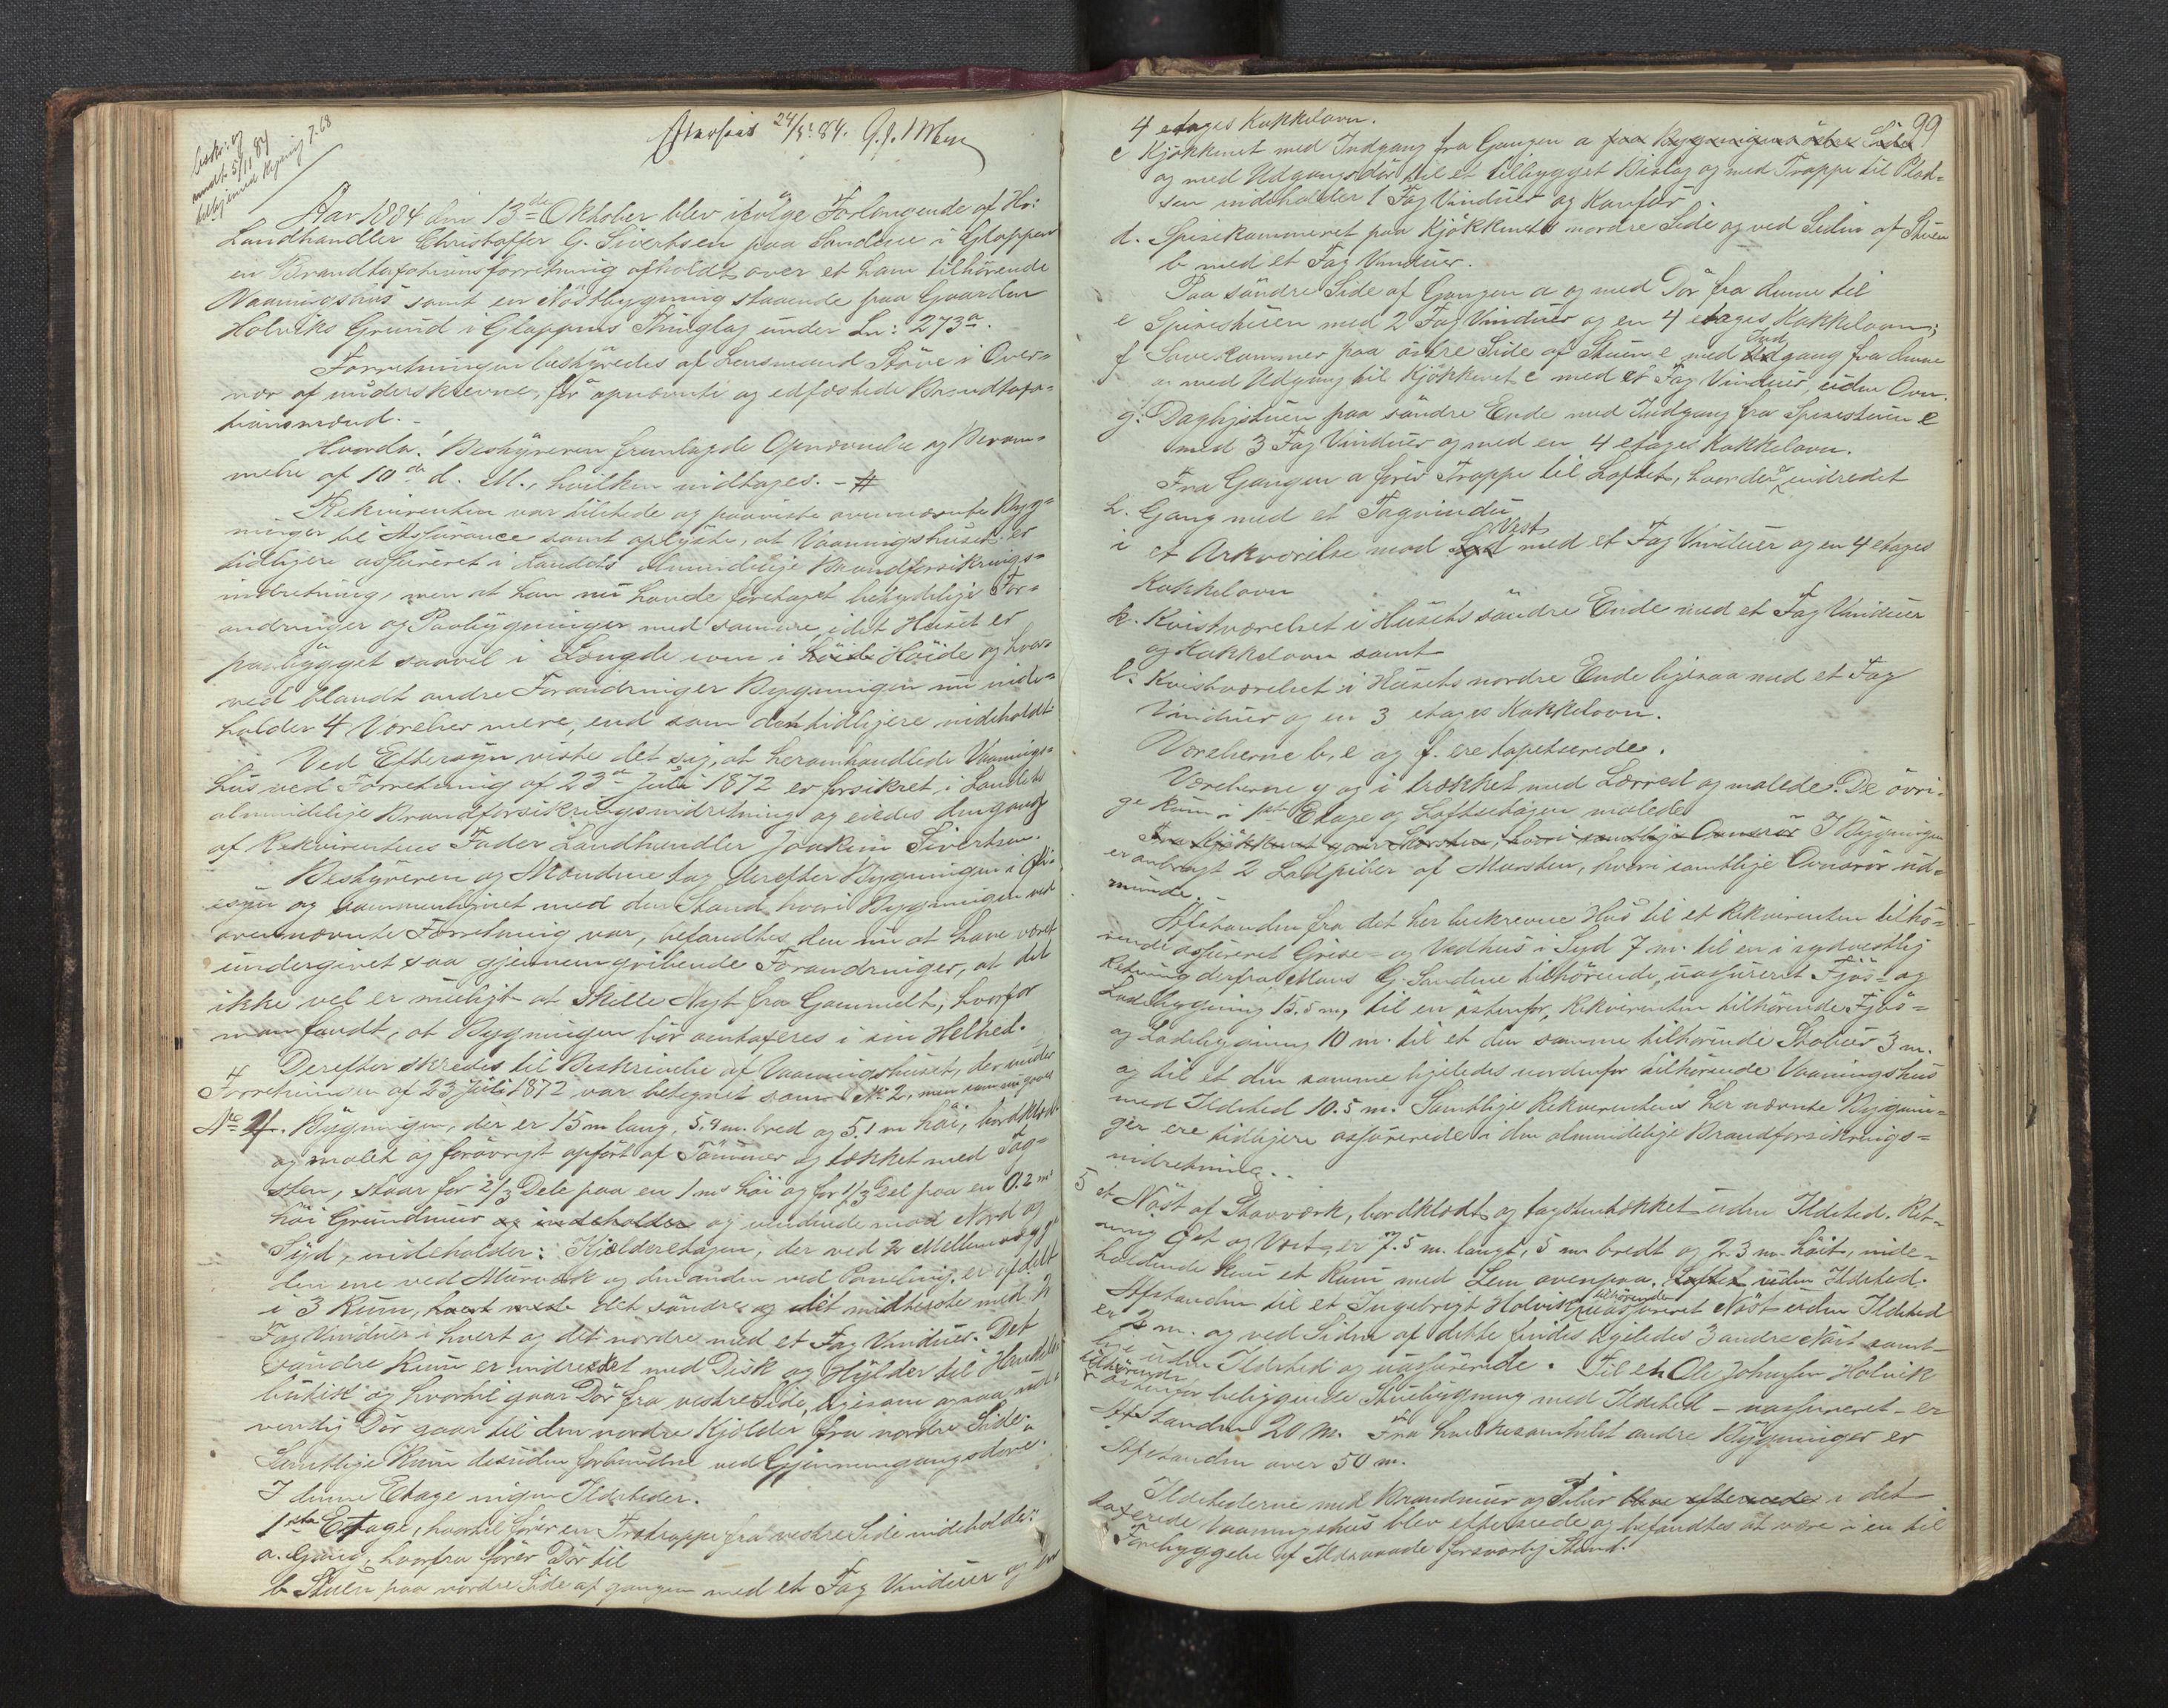 beskr: og
undt 5/11 84
24/11 84.
Aar 1884 den 13de Oktober blev ifølge Forlangende af Hr:
Landhandler Christoffer G. Sivertsen paa Sandene i Gloppen
en Brandtaxationsforretning afholdt over et ham tilhörende
Vaaningshus samt en Nöstbygning staaende paa Gaarden
Holviks Grund i Gloppens Thinglag under Ln: 273a.
Forretningen bestyredes af Lensmand i Over=
vær af underskrevne, för opnævnte og edfæstede Brandtaxa=
tionsmænd. -
Hvorda! Bestyreren fremlagde Opnævnelse og Beram=
melse af 10de d. M., hvilken indtages. - #
Rekvirenten var tilstede og paaviste ovennævnte Byg=
ninger til Assurance samt oplyste, at Vaaningshuset er
tidligere assureret i Landets Almindelige Brandforsikrings=
indretning, men at han nu havde foretaget betydelige For=
andringer og Paabygninger med samme, idet Huset er
paabygget saavel i Længde som i höide Höide og hvor=
ved blandt andre Forandringer Bygningen nu inde=
holder 4 Værelser mere, end som den tidligere indeholdt
Ved Eftersyn viste det sig, at heromhandlede Vaanings=
hus ved Forretning af 23de Juli 1872 er forsikret i Landets
almindelige Brandforsikringsindretning og eiedes dengang
af Rekvirentens Fader Landhandler Joakim Sivertsen.
Bestyreren og Mændene tog derefter Bygningen i Øie=
syn og sammenlignet med den Stand hvori Bygningen ved
ovennævnte Forretning var, befandtes den nu at have været
undergivet saa gjennemgribende Forandringer, at det
ikke vel er muligt at skille Nyt fra Gammelt, hvorfor
man fandt, at Bygningen bör omtaxeres i sin Helhed.
Derefter skredes til Beskrivelse af Vaaningshuset, der under
4
Forretningen af 23 Juli 1872 var betegnet som No 2, men som nu
No 4. Bygningen, der er 15 m lang, 5,9 m. bred og 5.1 m höi, bordklædt
og malet og forövrigt opfört af Tömmer og tækket med Tag=
sten, staar for 2/3 Dele paa en 1 m höi og for 1/3 Del paa en 0.2 m
höi Grundmur og indeholder og vendende mod Nord og
Syd, indeholder: Kjælderetagen, der ved 2 Mellemvægge
den ene ved Murværk og den anden ved Paneling, er afdelt
i 3 Rum, hvert med det söndre og det midterste med 2
Fag Vinduer i hvert og det nordre med et Fag Vinduer. Det
söndre Rum er indredet med Disk og Hylder til Handels=
butik og hvortil gaar Dör fra vestre Side, ligesom ogsaa
vendig Dör gaar til den nordre Kjelder fra nordre Side.
Samtlige Rum desuden forbundne ved Gjennemgangsdöre.
I denne Etage ingen Ildsteder.
1ste Etage, hvortil förer en Trætrappe fra vestre Side indeholder:
a. Gang, hvorfra förer Dör til
b Stuen paa nordre Side af gangen med et Fag Vinduer og en
99
4 etages Kakkelovn.
c Kjökkenet med Indgang fra Gangen a paa Bygningens östre Side
og med Udgangsdör til et tilbygget Bislag og med Trappe til Plad=
sen indeholder 1 Fag Vinduer og Komfur
d. Spisekammeret paa Kjökkenets nordre Side og ved Siden af Stuen
b med et Fag Vinduer.
Paa söndre Side af Gangen a og med Dör fra denne til
e Spisestuen med 2 Fag Vinduer og en 4 etages Kakkelovn;
Ind
f Sovekammer paa östre Side af Stuen e med Udgang fra denne
og med Udgang til Kjökkenet c med et Fag Vinduer, uden Ovn.
g. Dagligstuen paa söndre Ende med Indgang fra Spisestuen e
med 3 Fag Vinduer og med en 4 etages Kakkelovn.
Fra Gangen a förer Trappe til Loftet, hvor der indredet
h. Gang med et Tagvindu
Vest
i et Arkværelse mod Syd med et Fag Vinduer og en 4 etages
Kakkelovn
k. Kvistværelset i Husets söndre Ende med et Fag Vinduer
og Kakkelovn samt
l. Kvistværelset i Husets nordre Ende ligesaa med et Fag
Vinduer og en 3 etages Kakkelovn.
Værelserne b, e og f. ere tapetserede.
Værelserne g og i trækket med Lærred og malede. De övri=
ge Rum i 1ste Etage og Loftsetagen malede
Fra Kjökkenet gaar Skorsten, hvori samtlige Ovnsrör I Bygningen
er anbragt 2 Ladpiber af Mursten, hvori samtlige Ovnsrör ud=
munde.
Afstanden fra det her beskrevne Hus til et Rekvirenten tilhö=
rende assureret Grise- og Vedhus i Syd 7 m. til en i sydvestlig
Retning derfra Mons G. Sandene tilhörende, uassureret Fjös- og
Ladebygning 15.5 m, til en östenfor, Rekvirenten tilhörende Fjös=
og Ladebygning 10 m. til et den samme tilhörende Stabur 3 m.
og til et den samme ligeledes nordenfor tilhörende Vaaningshus
med Ildsted 10.5 m. Samtlige Rekvirentens her nævnte Bygnin=
ger ere tidligere assurerede i den almindelige Brandforsikrings=
indretning.
5 et Nöst af Stavværk, bordklædt og tagstentækket uden Ildsted. Ret=
ning Öst og Vest, er 7.5 m. langt, 5 m bredt og 2.3 m. höit, inde=
holdende kun et Rum med Lem ovenpaa. Loftet uden Ildsted.
tilhörende
Afstanden til et Ingebrigt Holvik uassureret Nöst uden Ildsted
er 2 m. og ved Siden af dette findes ligeledes 3 andre Nöst samt=
lige uden Ildsted og uassurerede. Til en Ole Johansen Holvik
tilhörende
östenfor beliggende Stuebygning med Ildsted - uassureret - er
Afstanden 20 M. Fra hvilkesomhelst andre Bygninger er
Afstanden over 50 m.
Ildstederne med Brandmur og Piber blve efterseede i det
taxerede Vaaningshus blev efterseede og befandtes at være i en til
Forebyggelse af Ildsvaade forsvarlig Stand.